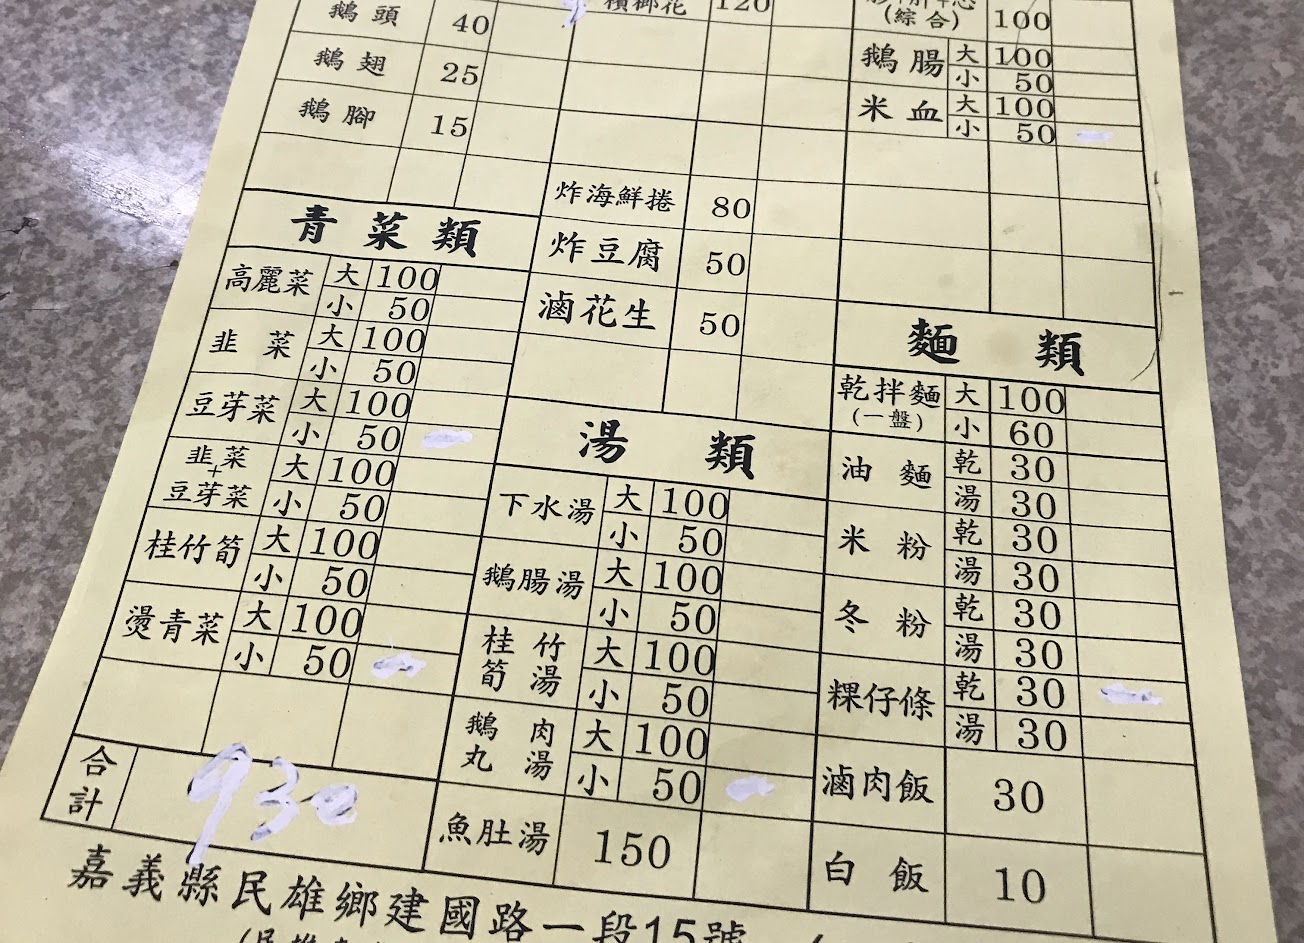 鵝頭 40
鵝翅 25
鵝腳 15
青菜類
高麗菜 大 100
小 50
韭菜 大 100
小 50
豆芽菜 大 100
小 50
韭菜+豆芽菜 大 100
小 50
桂竹筍 大 100
小 50
燙青菜 大 100
小 50
合計 930
檳榔花 120
炸海鮮捲 80
炸豆腐 50
滷花生 50
湯類
下水湯 大 100
小 50
鵝腸湯 大 100
小 50
桂竹筍湯 大 100
小 50
鵝肉丸湯 大 100
小 50
魚肚湯 150
(綜合) 100
鵝腸 大 100
小 50
米血 大 100
小 50
麵類
乾拌麵(一盤) 大 100
小 60
油麵 乾 30
湯 30
米粉 乾 30
湯 30
冬粉 乾 30
湯 30
粿仔條 乾 30
湯 30
滷肉飯 30
白飯 10
嘉義縣民雄鄉建國路一段15號